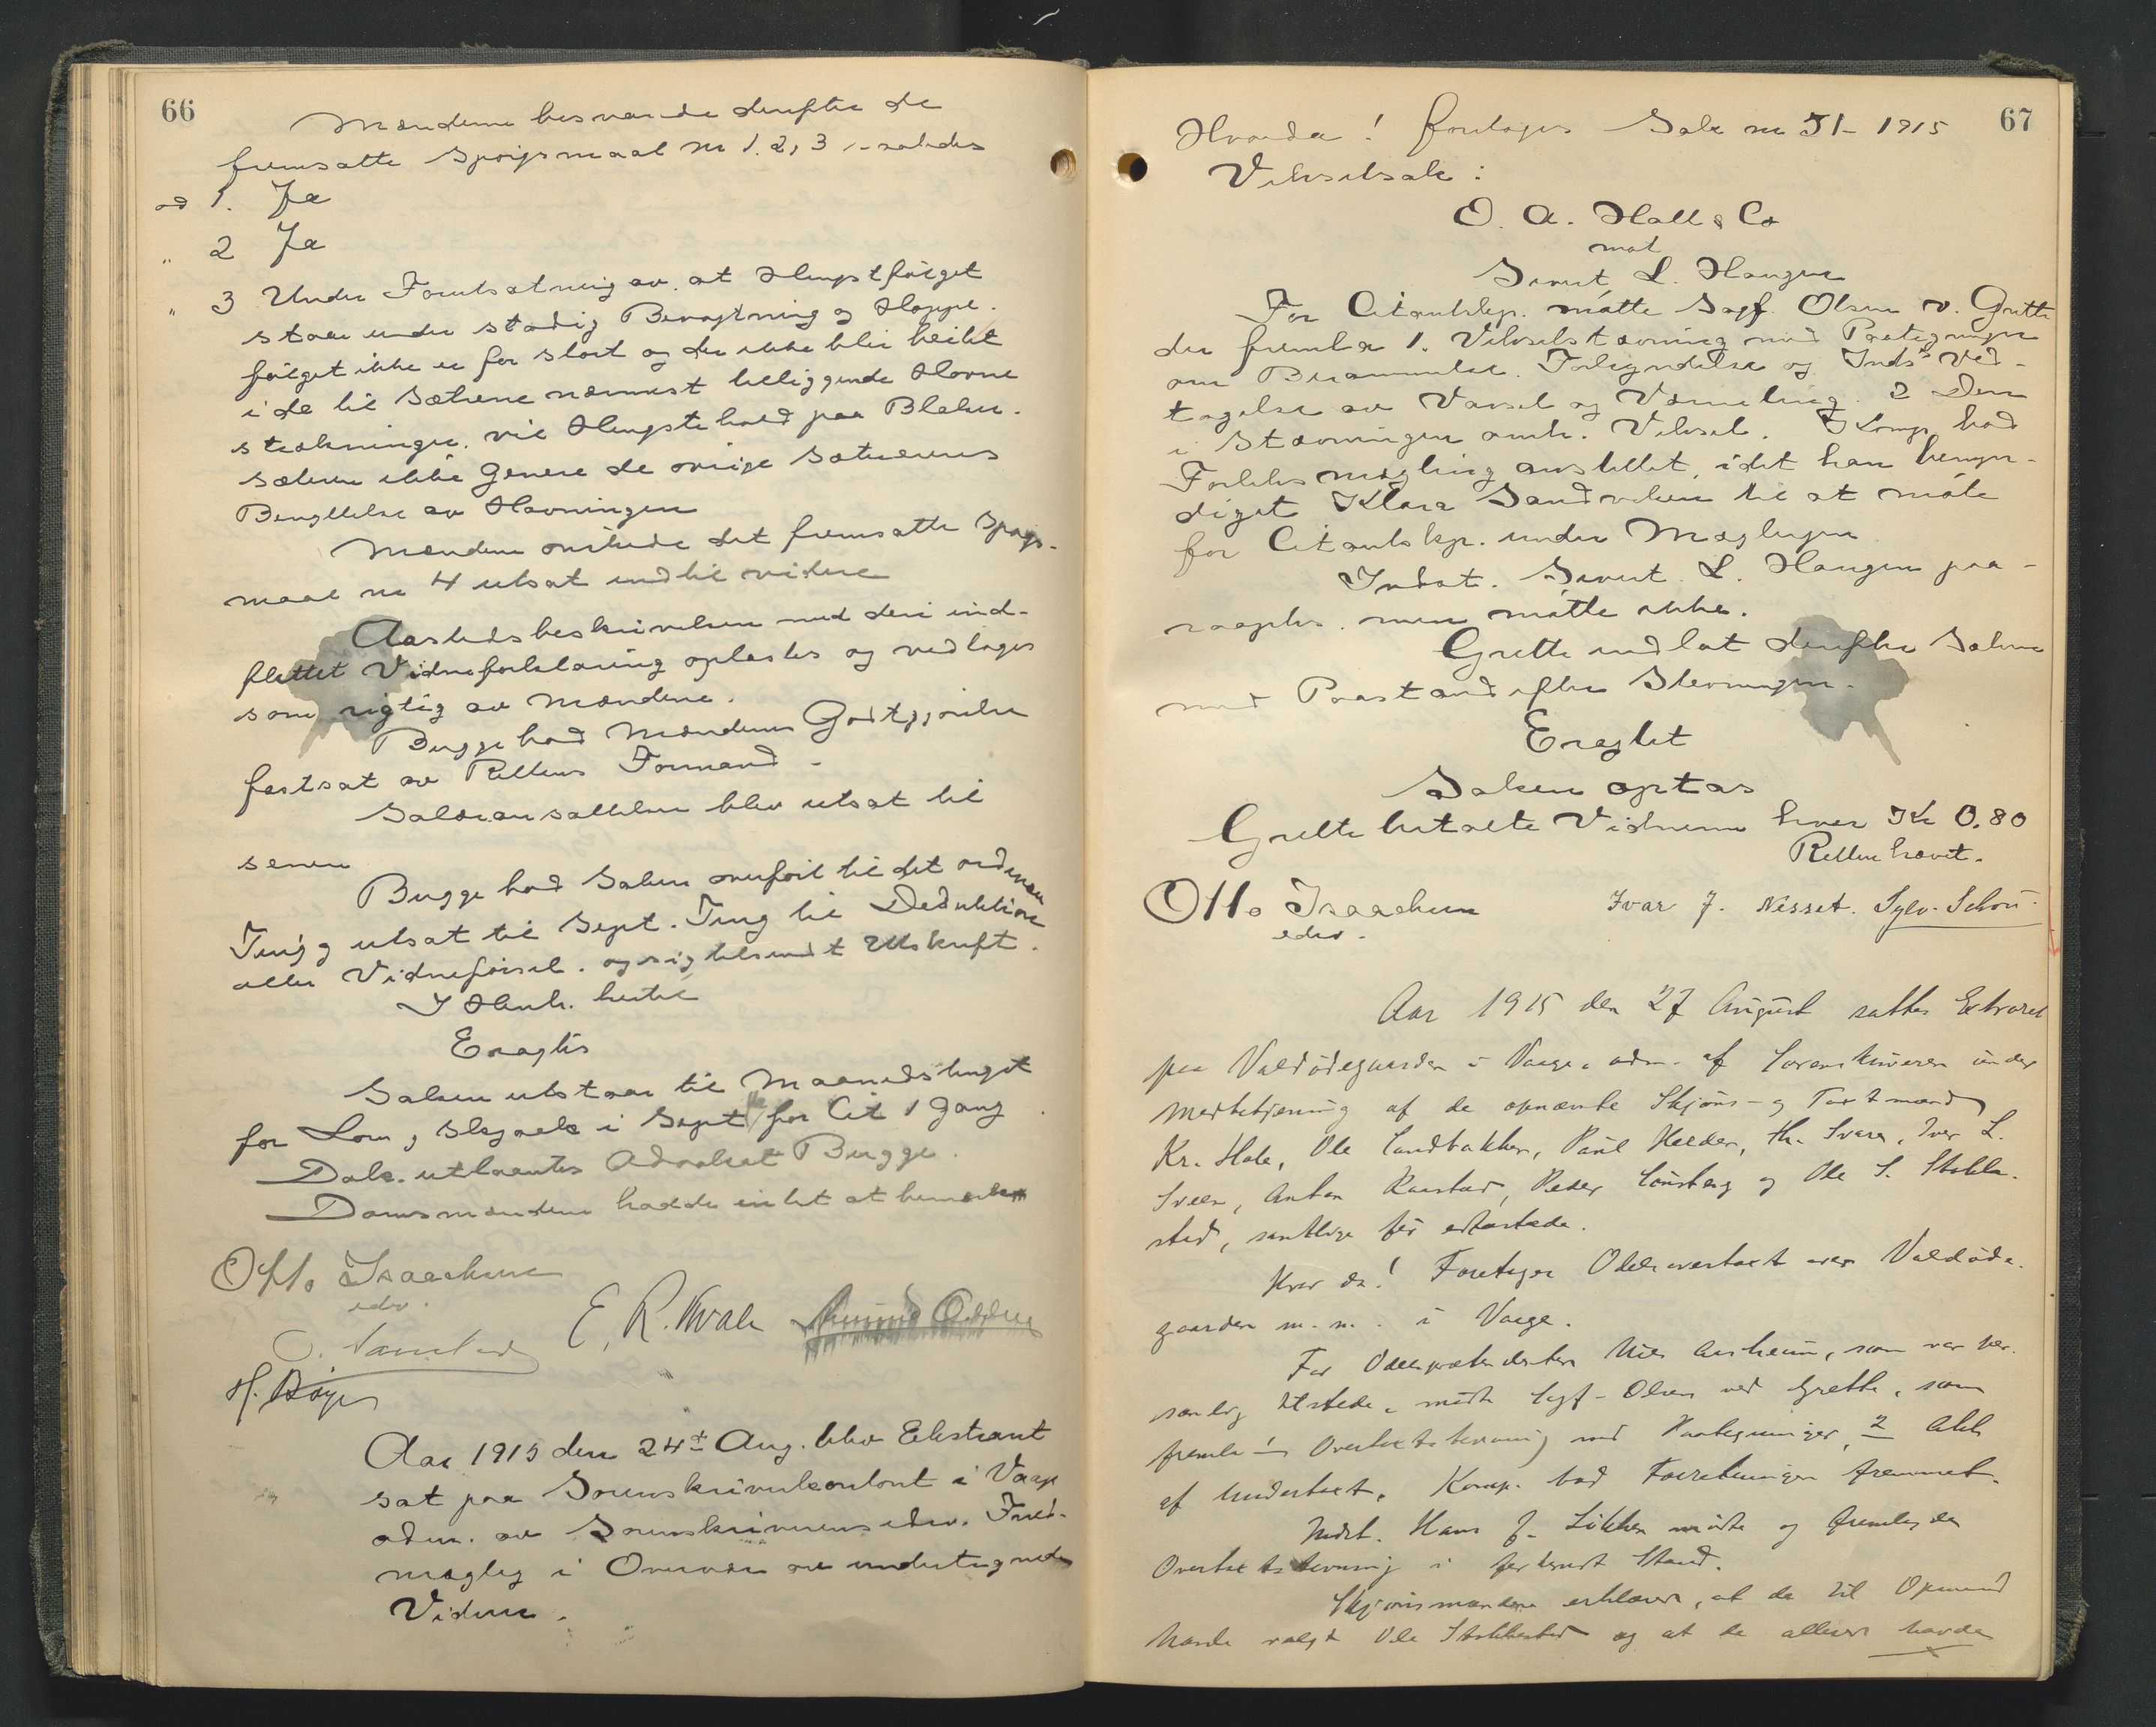 66
Mændene besvarede derefter de
fremsatte Spørgsmaal nr 1. 2, 3 saaledes
ad 1. Ja
" 2 Ja
" 3 Under Forutsætning av at Hingstfølget
staar under stadig Bevogtning og Hoppe-
følget ikke er for stort og der ikke blir beitet
i de til Sætrene nærmest beliggende Havne
strækninger, vil Hingstehold paa
sæteren ikke Genere de øvrige Sætreeieres
Benyttelse av Havningen
Mændene ønskede det fremsatte Spørgs-
maal nr 4 utsat indtil videre
Aastedsbeskrivelsen med deri ind-
flettet Vidneforklaring oplæstes og vedtoges
som rigtig av Mændene.
Bugge bad Mændenes Godtgjørelse
fastsat av Rettens Formand -
Salæransættelsen blev utsat til
senere
Bugge bad Saken overført til det ordinære
Ting og utsat til Sept. Ting til Deduktion
eller Vidneførsel. og sig tilsendt Utskrift.
I Henh. hertil
Eragtes
Saken utstaar til Maanedstinget
for Lom og Skjaak i Sept for Cit 1 Gang
Dok. utlaantes Advokat Bugge.
Domsmændene hadde intet at bemerke
Otto Isaachsen
edsv.
E. R. Kvale
Aar 1915 den 24de Aug. blev Ekstraret
sat paa Sorenskriverkontoret i Vaage
adm. av Sorenskriverens edsv. Fuld-
mægtig i Overvær av undertegnede
Vidner.
67
Hvorda! foretoges Sak nr 51- 1915
Vekselsak:
O. A. Hall & Co
mot
Sivert L. Haugen
For Citantskp. møtte Sagf. Olsen v. Grette
der fremla 1. Vekselstævning med Paategninger
om Berammelse. Forkyndelse og Indst Ved-
tagelse av Varsel og Værneting. 2 Den
i Stævningen omh. Veksel. Komp. bad
Forliksmægling anstillet, idet han bemyn-
diget Klara Sandviken til at møte
for Citantskp. under Mæglingen
Indst. Sivert L. Haugen paa-
raaptes, men møtte ikke.
Grette indlot derefter Saken
med Paastand efter Stevningen.
Eragtet
Saken optas
Grette betalte Vidnerne hver Kr 0.80
Retten hævet.
Otto Isaachsen
edsv.
Ivar J. Nesset. Sylv. Schou
Aar 1915 den 27 August sattes Extraret
paa Valdødegaarden i Vaage, adm. af Sorenskriveren under
Medbetjening af de opnævnte Skjøns- og Taxtmænd
Kr. Hole, Ole Sandbakken, Paul Helder, Th. Svare, Iver L.
Sveen, Anton Raastad, Peder Lønsberg og Ole S. Stokke-
stad, samtlige før edfæstede.
Hvor da! Foretages Odelsovertaxt over Valdøde-
gaarden m. m. i Vaage.
For Odelsprætendenten Nils Aasheim, som var per-
sonlig tilstede, mødte Sagf. Olsen ved Grette, som
fremla 1 Overtaxtstevning med Paategninger, 2 Akt
af Undertaxt. Komp. bad Forretningen fremmet.
Indst. Hans J. Løkken mødte og fremlagde
Overtaxtstevning i forkyndt Stand.
Skjønsmændene erklærer, at de til Opmand
havde valgt Ole Stokkestad og at de allesam havde